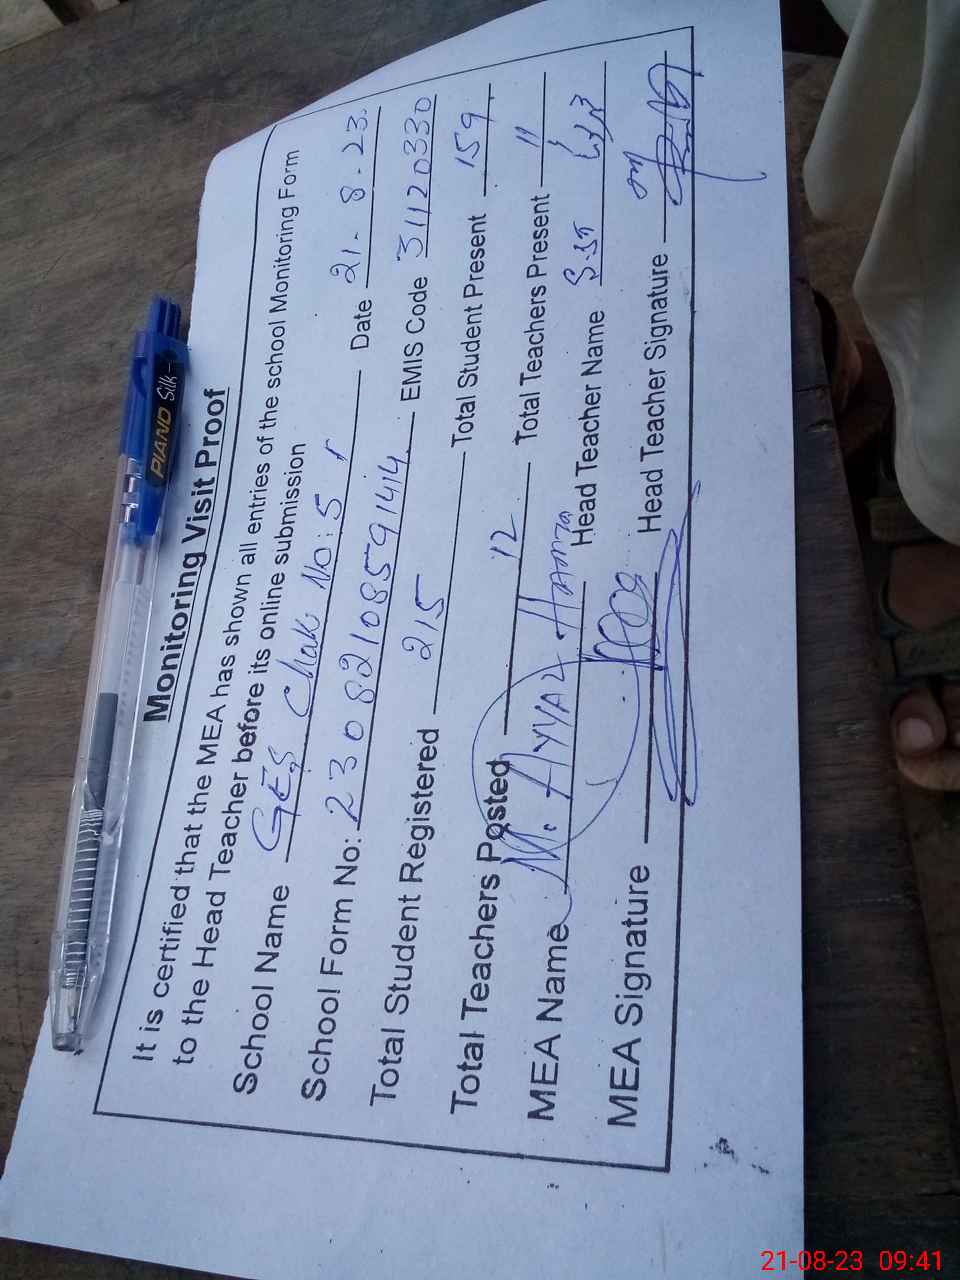 PIANO Silk
Monitoring Visit Proof
It is certified that the MEA has shown all entries of the school Monitoring Form
to the Head Teacher before its online submission
School Name GES Chak No: 5 Date 21.8.23.
School Form No: 230821085591414 EMIS Code 31120330
Total Student Registered 215 Total Student Present 159
Total Teachers Posted 12 Total Teachers Present 11
MEA Name M. AYYAZ HAMZA Head Teacher Name S.ST
MEA Signature Head Teacher Signature
21-08-23 09:41